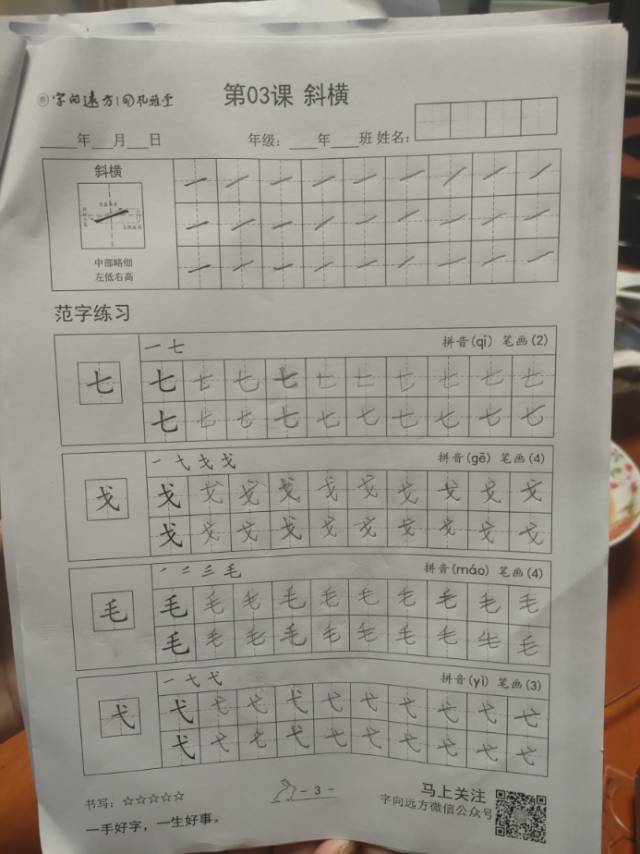 字向远方 孔雅堂
第03课 斜横
年 月 日 年级: 年 班 姓名:
斜横
中部略细
左低右高
范字练习
一 七 拼音(qi) 笔画(2)
七 七 七 七 七 七 七 七 七 七 七
七 七 七 七 七 七 七 七 七 七
拼音(gē) 笔画(4)
戈 戈 戈 戈 戈 戈 戈 戈 戈 戈 戈
戈 戈 戈 戈 戈 戈 戈 戈 戈 戈
毛 拼音(máo) 笔画(4)
毛 毛 毛 毛 毛 毛 毛 毛 毛 毛 毛
毛 毛 毛 毛 毛 毛 毛 毛 毛 毛
一 七 弋 拼音(yì) 笔画(3)
弋 弋 弋 弋 弋 弋 弋 弋 弋 弋 弋
弋 弋 弋 弋 弋 弋 弋 弋 弋 弋
书写: ☆☆☆☆☆ - 3 - 马上关注
一手好字，一生好事。 字向远方微信公众号